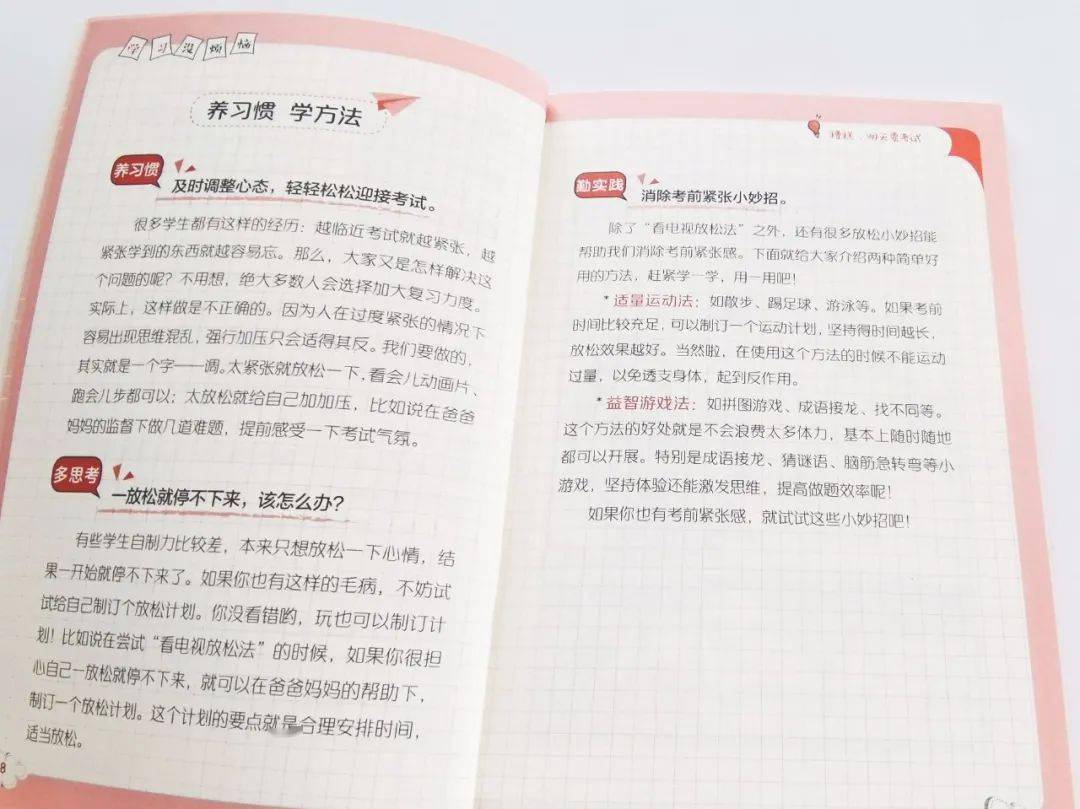 学习没烦恼
养习惯 学方法
养习惯
及时调整心态，轻轻松松迎接考试。
很多学生都有这样的经历：越临近考试就越紧张，越
紧张学到的东西就越容易忘。那么，大家又是怎样解决这
个问题的呢？不用想，绝大多数人会选择加大复习力度。
实际上，这样做是不正确的。因为人在过度紧张的情况下
容易出现思维混乱，强行加压只会适得其反。我们要做的，
其实就是一个字——调。太紧张就放松一下，看会儿动画片、
跑会儿步都可以；太放松就给自己加加压，比如说在爸爸
妈妈的监督下做几道难题，提前感受一下考试气氛。
多思考
一放松就停不下来，该怎么办？
有些学生自制力比较差，本来只想放松一下心情，结
果一开始就停不下来了。如果你也有这样的毛病，不妨试
试给自己制订个放松计划。你没看错哟，玩也可以制订计
划！比如说在尝试“看电视放松法”的时候，如果你很担
心自己一放松就停不下来，就可以在爸爸妈妈的帮助下，
制订一个放松计划。这个计划的要点就是合理安排时间，
适当放松。
8
糟糕，明天要考试
勤实践
消除考前紧张小妙招。
除了“看电视放松法”之外，还有很多放松小妙招能
帮助我们消除考前紧张感。下面就给大家介绍两种简单好
用的方法，赶紧学一学，用一用吧！
*适量运动法：如散步、踢足球、游泳等。如果考前
时间比较充足，可以制订一个运动计划，坚持得时间越长，
放松效果越好。当然啦，在使用这个方法的时候不能运动
过量，以免透支身体，起到反作用。
*益智游戏法：如拼图游戏、成语接龙、找不同等。
这个方法的好处就是不会浪费太多体力，基本上随时随地
都可以开展。特别是成语接龙、猜谜语、脑筋急转弯等小
游戏，坚持体验还能激发思维，提高做题效率呢！
如果你也有考前紧张感，就试试这些小妙招吧！